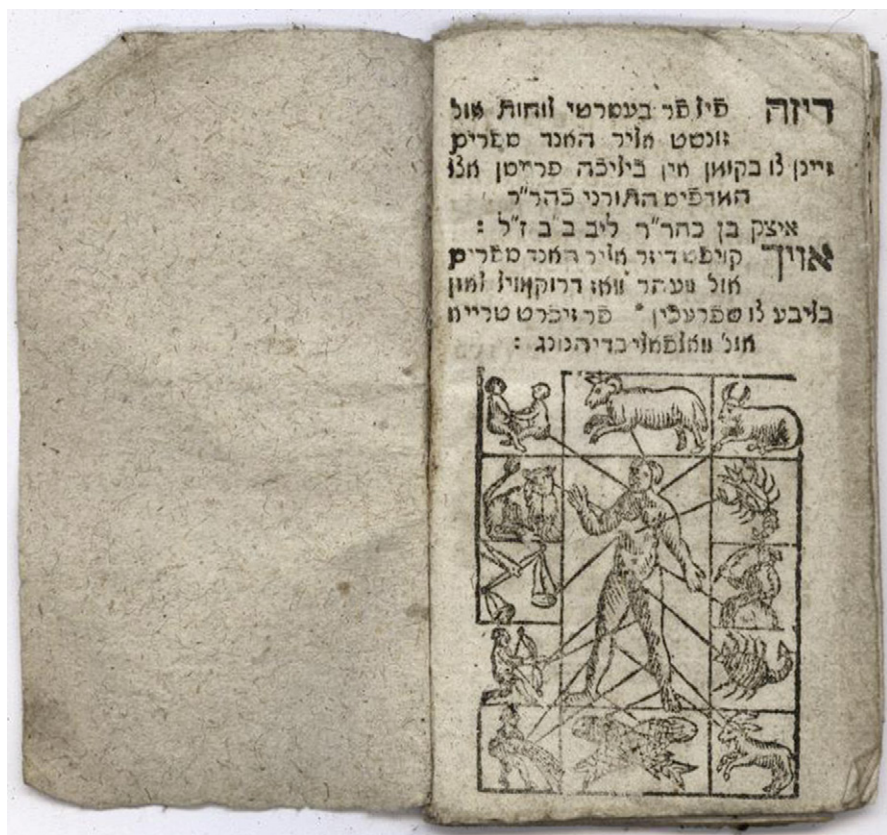 דיזה פיל פר בעסרטי לוחות אול
זונשט אליר האנד ספרים
זיינן צו בקומן אין ביליכה פרייזן אצל
האדפיס התורני כהר״ר
איצק בן כהר״ר ליב ב״ב ז״ל :
אויך קויפט דיזר אליר האנד ספרים
אול ווער וואז דרוקן
בליבע צו שפרעכין * פר זיכרט טרייא
אול בדיהנונג :